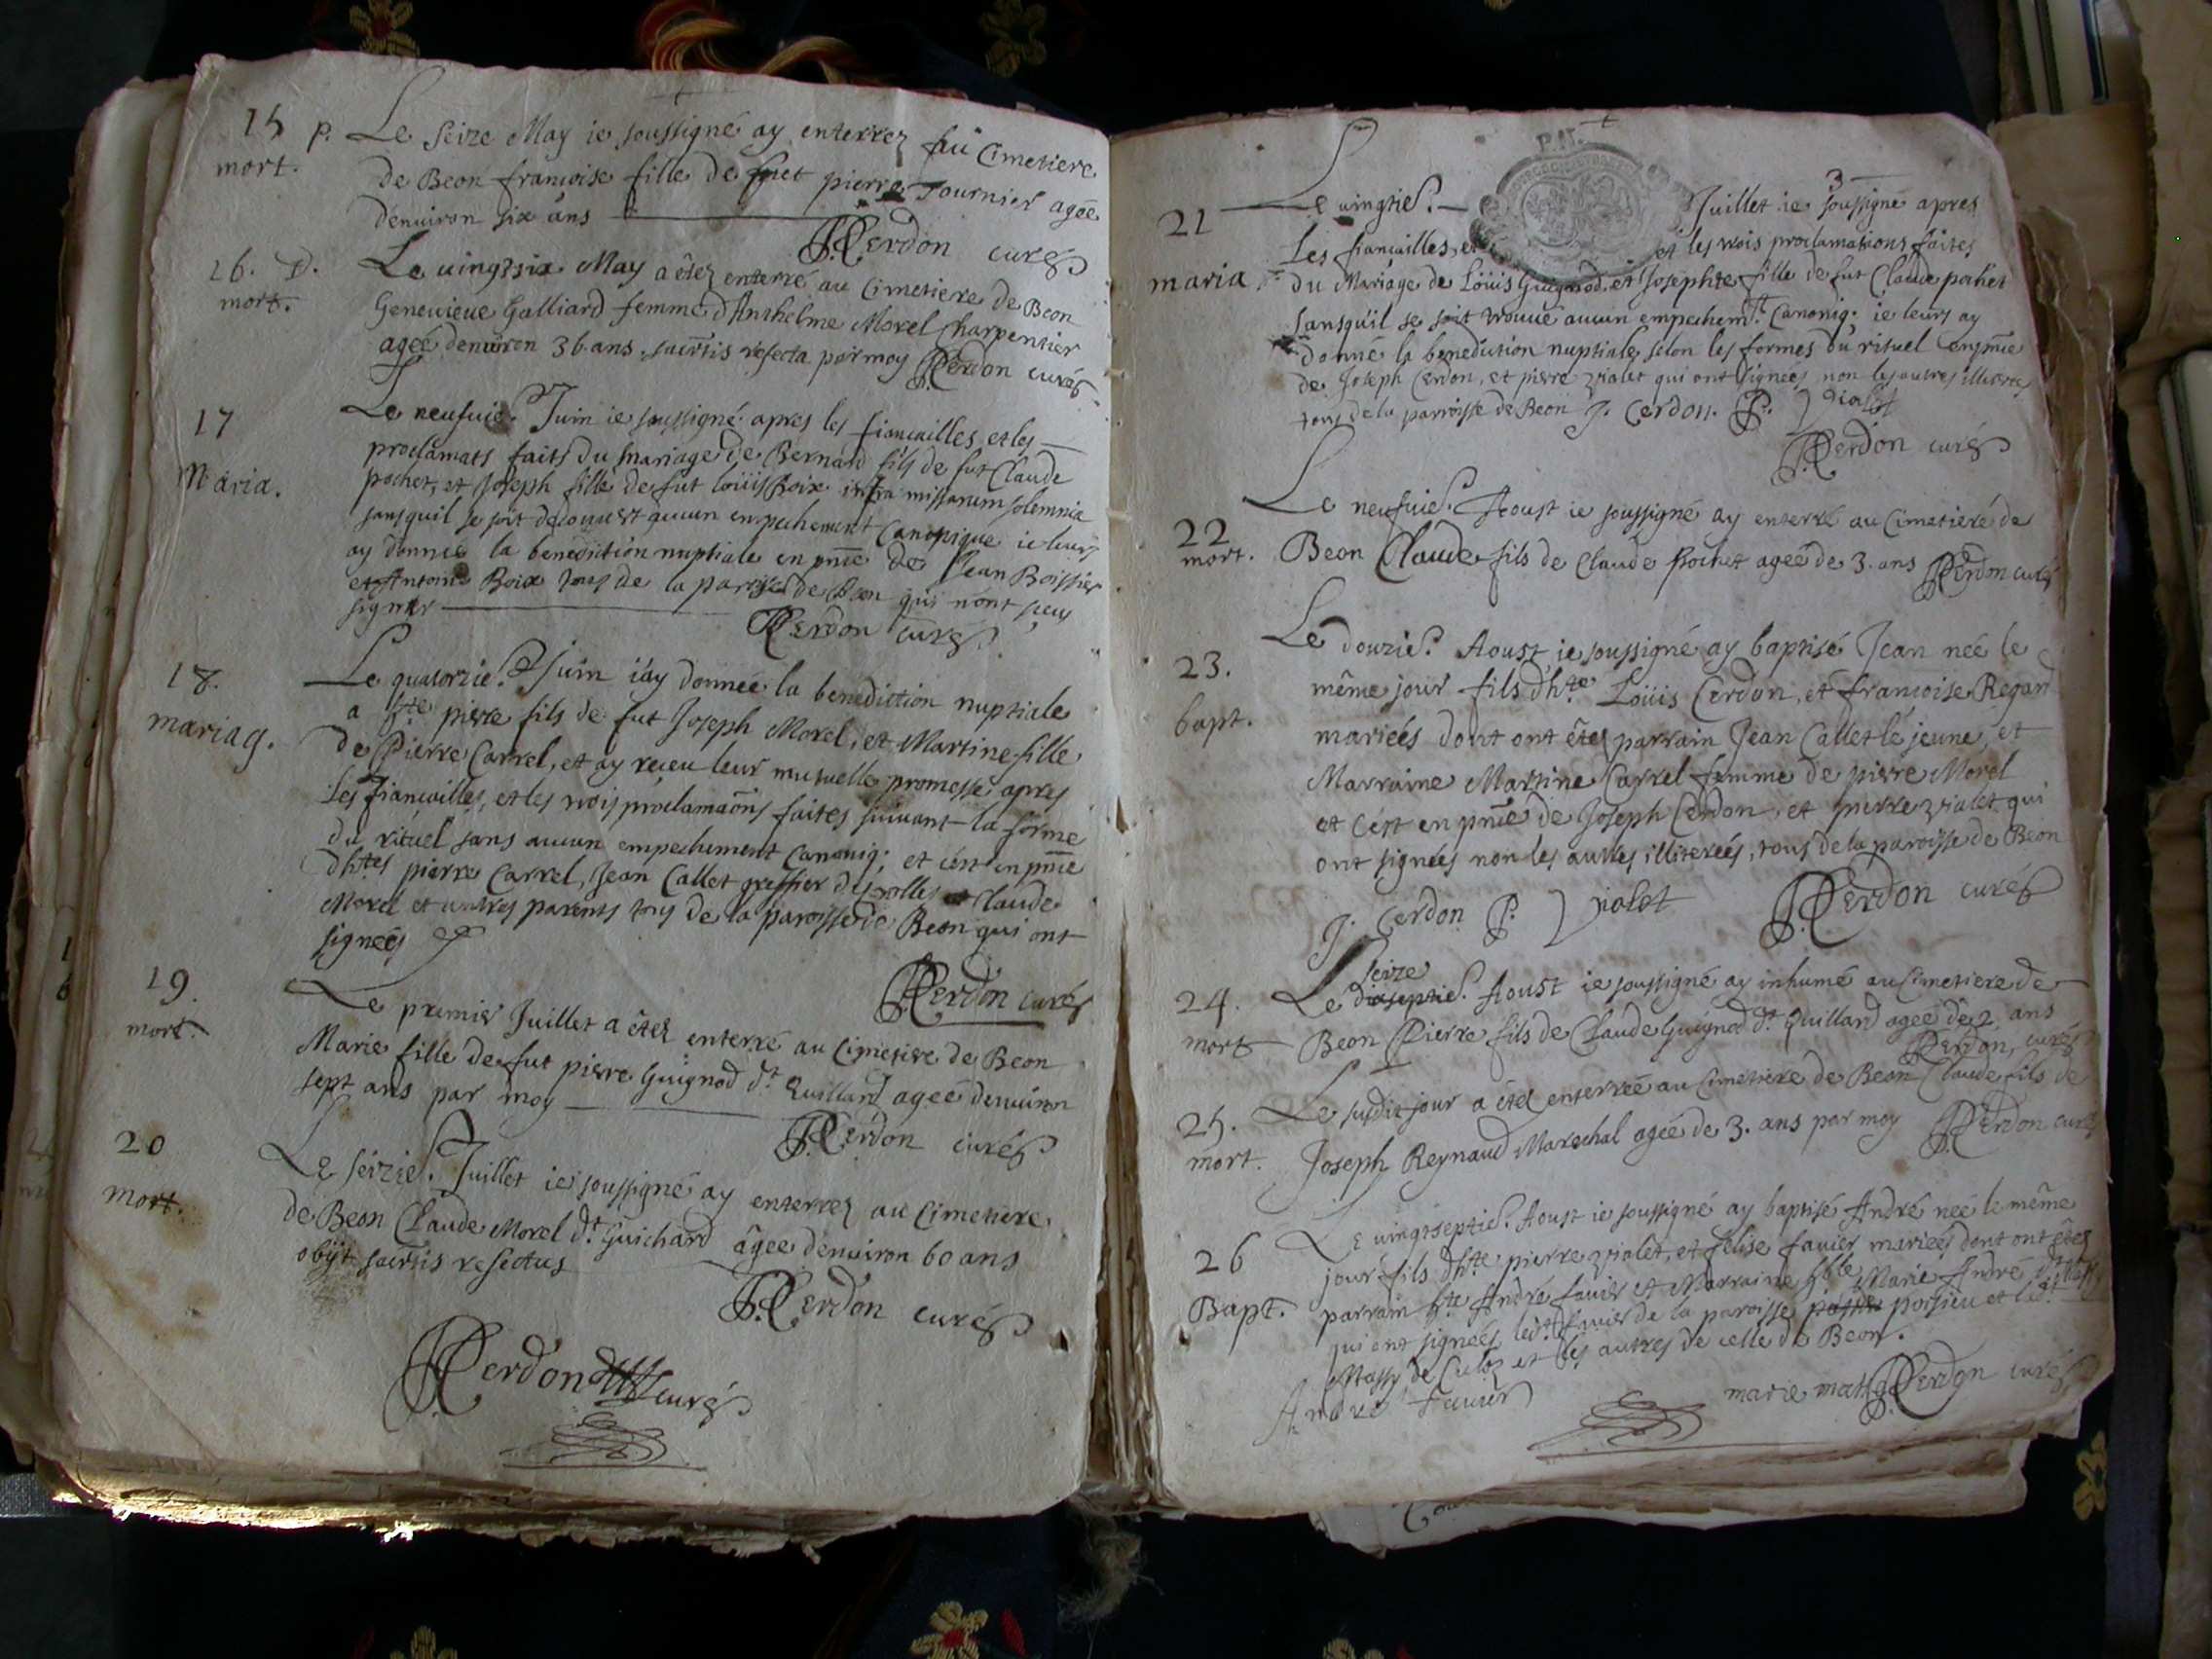 15 P. Le seize May ie soussigné ay enterrez au Cimetiere
mort. de Beon francoise fille de fuet pierre Fournier agée
denuiron six ans
P. Cerdon curé
16. D. Le uingtsix May a étez enterré au Cimetiere de Beon
mort. Geneuieue Galliard femme d'Anthelme Morel Charpentier
agée denuiron 36 ans sacrtis refecta par moy P. Cerdon curé
17 Le neufuie. Juin ie soussigné apres les fiancailles et les
proclamats faits du mariage de Bernard fils de fut Claude
Maria. pochet, et Joseph fille de fut loüis Boix infra missarum solemnia
sansquil se soit decouuert aucun empechement Canonique ie leurs
ay donnée la benediction nuptiale en pnce de Jean Boissier
et Antoine Boix tous de la paroisse de Beon qui n'ont sceu
signer
P. Cerdon curé
18. Le quatorzie. Juin i'ay donneé la benediction nuptiale
a hte pierre fils de fut Joseph Morel, et Martine fille
mariag. de Pierre Carrel, et ay receu leur mutuelle promesse apres
les fiancailles, et les trois proclamaons faites suiuant la forme
du rituel sans aucun empechement Canoniq; et c'est en pnce
dhtes pierre Carrel, Jean Callet greffier des rolles et Claude
Morel et autres parents tous de la paroisse de Beon qui ont
signeés
P. Cerdon curé
19. Le premier Juillet a étez enterré au Cimetiere de Beon
mort. Marie fille de fut pierre Guignod dt Quillard agée denuiron
sept ans par moy
P. Cerdon curé
20 Le seizie. Juillet ie soussigné ay enterrez au Cimetiere
mort. de Beon Claude Morel dt Guichard âgée denuiron 60 ans
obijt sacrtis refectus
P. Cerdon curé
P. Cerdon curé
3
21 Le uingtie. Juillet ie soussigné apres
les fiancailles, et les trois proclamations faites
maria. du Mariage de Loüis Guignod, et Josephte fille de fut Claude pochet
sansquil se soit trouué aucun empechemt. Canoniq. ie leurs ay
donné la benediction nuptiale selon les formes du rituel en pnce
de Joseph Cerdon, et pierre Vialet qui ont signeés non les autres illiterés
tous de la parroisse de Beon J. Cerdon. P. Vialet
P. Cerdon curé
22 Le neufuie. Aoust ie soussigné ay enterré au Cimetiere de
mort. Beon Claude fils de Claude Pochet ageé de 3. ans P. Cerdon curé
23. Le douzie. Aoust ie soussigné ay baptisé Jean neé le
même jour fils dhte Loüis Cerdon, et francoise Regan
bapt. marieés dont ont étez parrain Jean Callet le jeune, et
Marraine Martine Carrel femme de pierre Morel
et c'est en pnce de Joseph Cerdon, et pierre Vialet qui
ont signeés non les autres illitereés, tous de la paroisse de Beon
J. Cerdon P. Vialet P. Cerdon curé
seize
24. Le dixseptie. Aoust ie soussigné ay inhumé au Cimetiere de
mort Beon Pierre fils de Claude Guignod dt Quillard ageé de 2 ans
P. Cerdon, curé
25. Le susdit jour a étez enterreé au Cimetiere de Beon Claude fils de
mort. Joseph Reynaud Marechal ageé de 3. ans par moy P. Cerdon curé
26 Le uingtseptie. Aoust ie soussigné ay baptisé André neé le même
jour fils dhte pierre Vialet, et felise fauier marieés dont ont étez
Bapt. parrain hte André fauier et Marraine hble Marie André
qui ont signeés ledt fauier de la paroisse poisieu et ladt
Massy de Culoz et les autres de celle de Beon.
André Fauier marie massy P. Cerdon curé